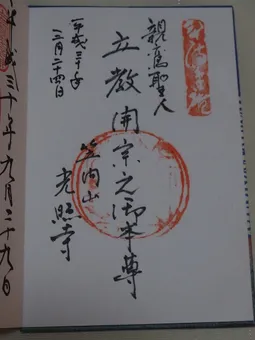 親鸞聖人
立教開宗之御本尊
笠間山
光照寺
平成三十年
二月二十四日
平成三十年九月二十九日